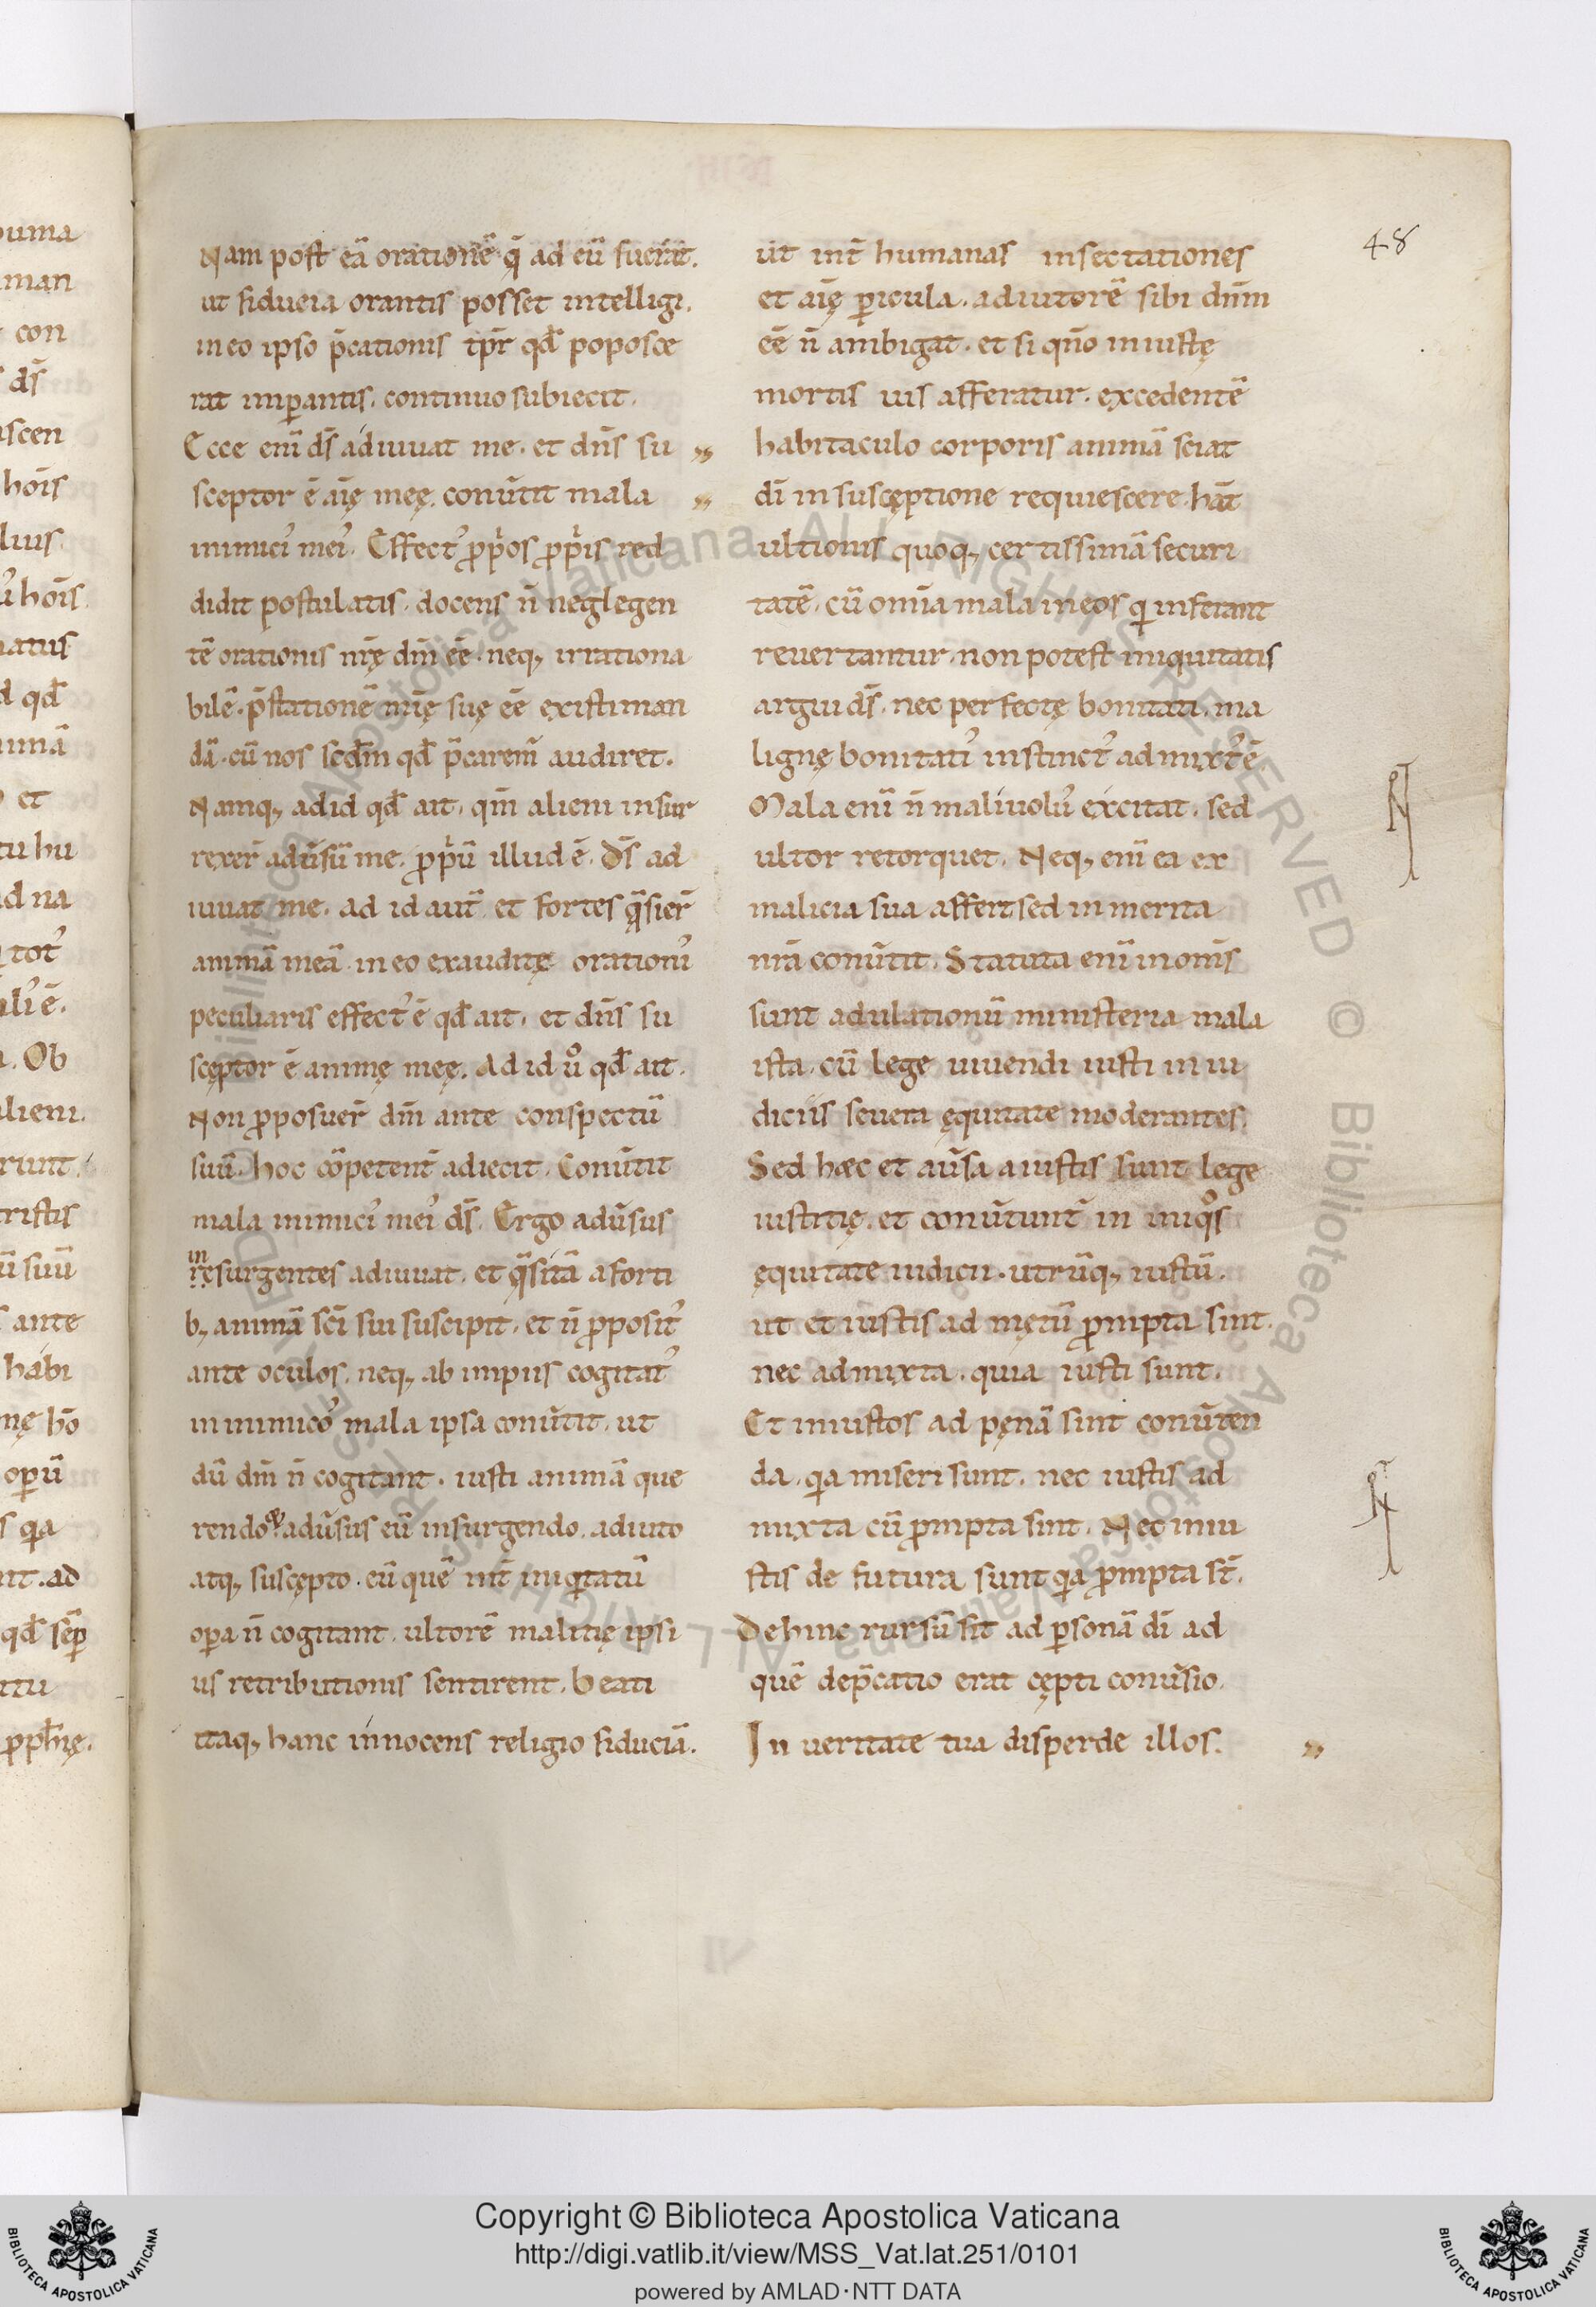 48
Nam post eā orationē q̄ ad eū fuerat.
ut fiducia orantis posset intelligi.
in eo ipso p̄cationis tp̄r qđ poposce
rat imꝑantis. continuo subiecit.
Ecce eni͂ ds̄ adiuuat me. et dn̄s su
sceptor ē aīę meę. conūtit mala
inimici᾽ mei᾽. Effect᾽ ꝓp̄os ꝓp̄is red
didit postulatis. docens n̄ neglegen
tē orationis nr̄ę dm̄ ēē. neq; irrationa
bilē. p̄stationē mīę suę ēē existiman
dā. cū nos scđm qđ p̄carem᾽ audiret.
Namq; ad id qđ ait. qm̄ alieni insur
rexer̄ adūsū me. ꝓp̄ū illud ē. Ds̄ ad
iuuat me. ad id aut̄ et fortes q̄sier̄
animā meā. in eo exauditę orationi᾽
peculiaris effect᾽ ē qđ ait. et dn̄s su
scęptor ē animę meę. Ad id ů qđ ait.
Non ꝓposuer̄ dm̄ ante conspectū
suū. hoc cōpetent᾽ adiecit. Conūtit
mala inimici᾽ mei᾽ ds̄. Ergo adūsus
in
resurgentes adiuuat. et q̄sitā a forti
b; animā sc̄i sui suscipit. et n̄ ꝓposit᾽
ante oculos. neq; ab impiis cogitat᾽
in inimico᾽ mala ipsa conūtit. ut
dū dm̄ n̄ cogitant. iusti animā que
rendo adūsus eū insurgendo. adiuto
atq; suscępto. eū quē int̄ iniqͥtatū
oꝑa n̄ cogitant. ultorē malitię ipsi
us retributionis sentirent. Beati
itaq; hanc innocens religio fiduciā.
ut int̄ humanas insectationes
et aīę ꝑicula. adiutorē sibi dnm̄
ēē n̄ ambigat. et si qn̄o iniustę
mortis uis afferatur. excedentē
habitaculo corporis animā sciat
dī in suscęptione requiescere. hāt
ultionis quoq; certissimā securi
tatē. cū omīa mala in eos qͥ inferant
reuertantur. non potest iniquitatis
argui ds̄. nec perfectę bonitati. ma
lignę bonitati᾽ instinct᾽ admixt᾽ ē.
Mala eni͂ n̄ maliuolu᾽ excitat. sed
ultor retorquet. Neq; eni͂ ea ex
malicia sua affert sed in merita
nrā conūtit. Statuta eni͂ in om̄s
sunt adulationū ministeria mala
ista. cū lege uiuendi iusti in iu
diciis seuera ęquitate moderantes.
Sed hæc et aūsa a iustis sunt lege
iustitię. et conūtunt᾽ in iniqͦs
ęquitate iudicii. utrūq; iustū.
ut et iustis ad mętū ꝓmpta sint.
nec admixta. quia iusti sunt.
Et iniustos ad pęnā sint conūten
da. qͣa miseri sunt. nec iustis ad
mixta cū ꝓmpta sint. Nec iniu
stis de futura sunt qͣa ꝓmpta st̄.
Dehinc rursū fit ad ꝑsonā dī ad
quē dep̄catio erat cępti conūsio.
In ueritate tua disperde illos.
Copyright © Biblioteca Apostolica Vaticana
http://digi.vatlib.it/view/MSS_Vat.lat.251/0101
powered by AMLAD·NTT DATA